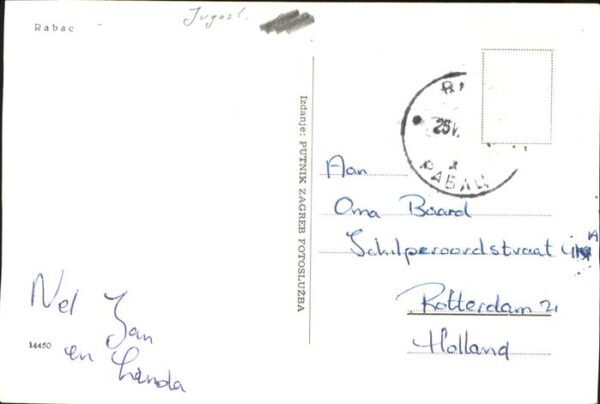 Rabac
Jugosl.
Izdanje: PUTNIK ZAGREB FOTOSLUŽBA
25 V.
РАБАЦ
Aan
Oma Baard
Schilperoordstraat
Rotterdam 21
Holland
Nel Jan
en Linda
14450